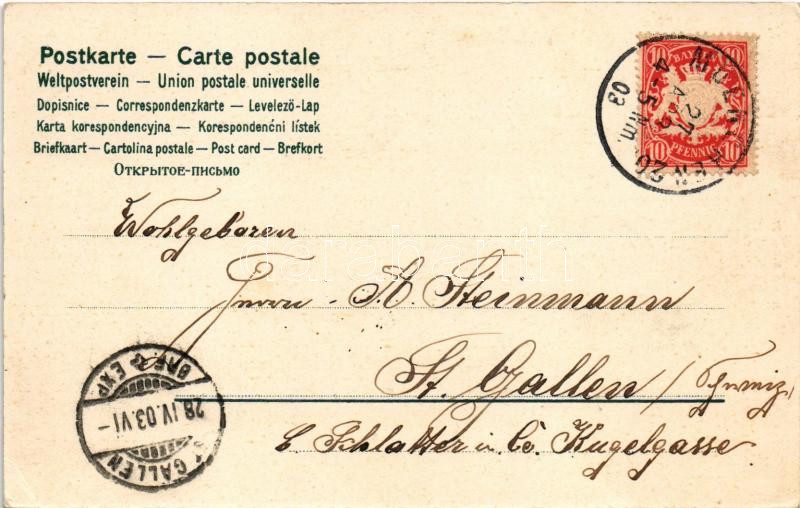 Postkarte — Carte postale
Weltpostverein — Union postale universelle
Dopisnice — Correspondenzkarte — Levelező-Lap
Karta korespondencyjna — Korespondenční lístek
Briefkaart — Cartolina postale — Post card — Brefkort
Открытое-письмо
10 BAYERN 10
10 PFENNIG 10
MUENCHEN 26
27. APR.
4-5 Nm.
03
Wohlgeboren
Herrn A. Steinmann
St. Gallen / Schweiz
b. Schlatter u. Co. Kugelgasse
BRF. EXP.
28.IV.03.VI-
ST. GALLEN